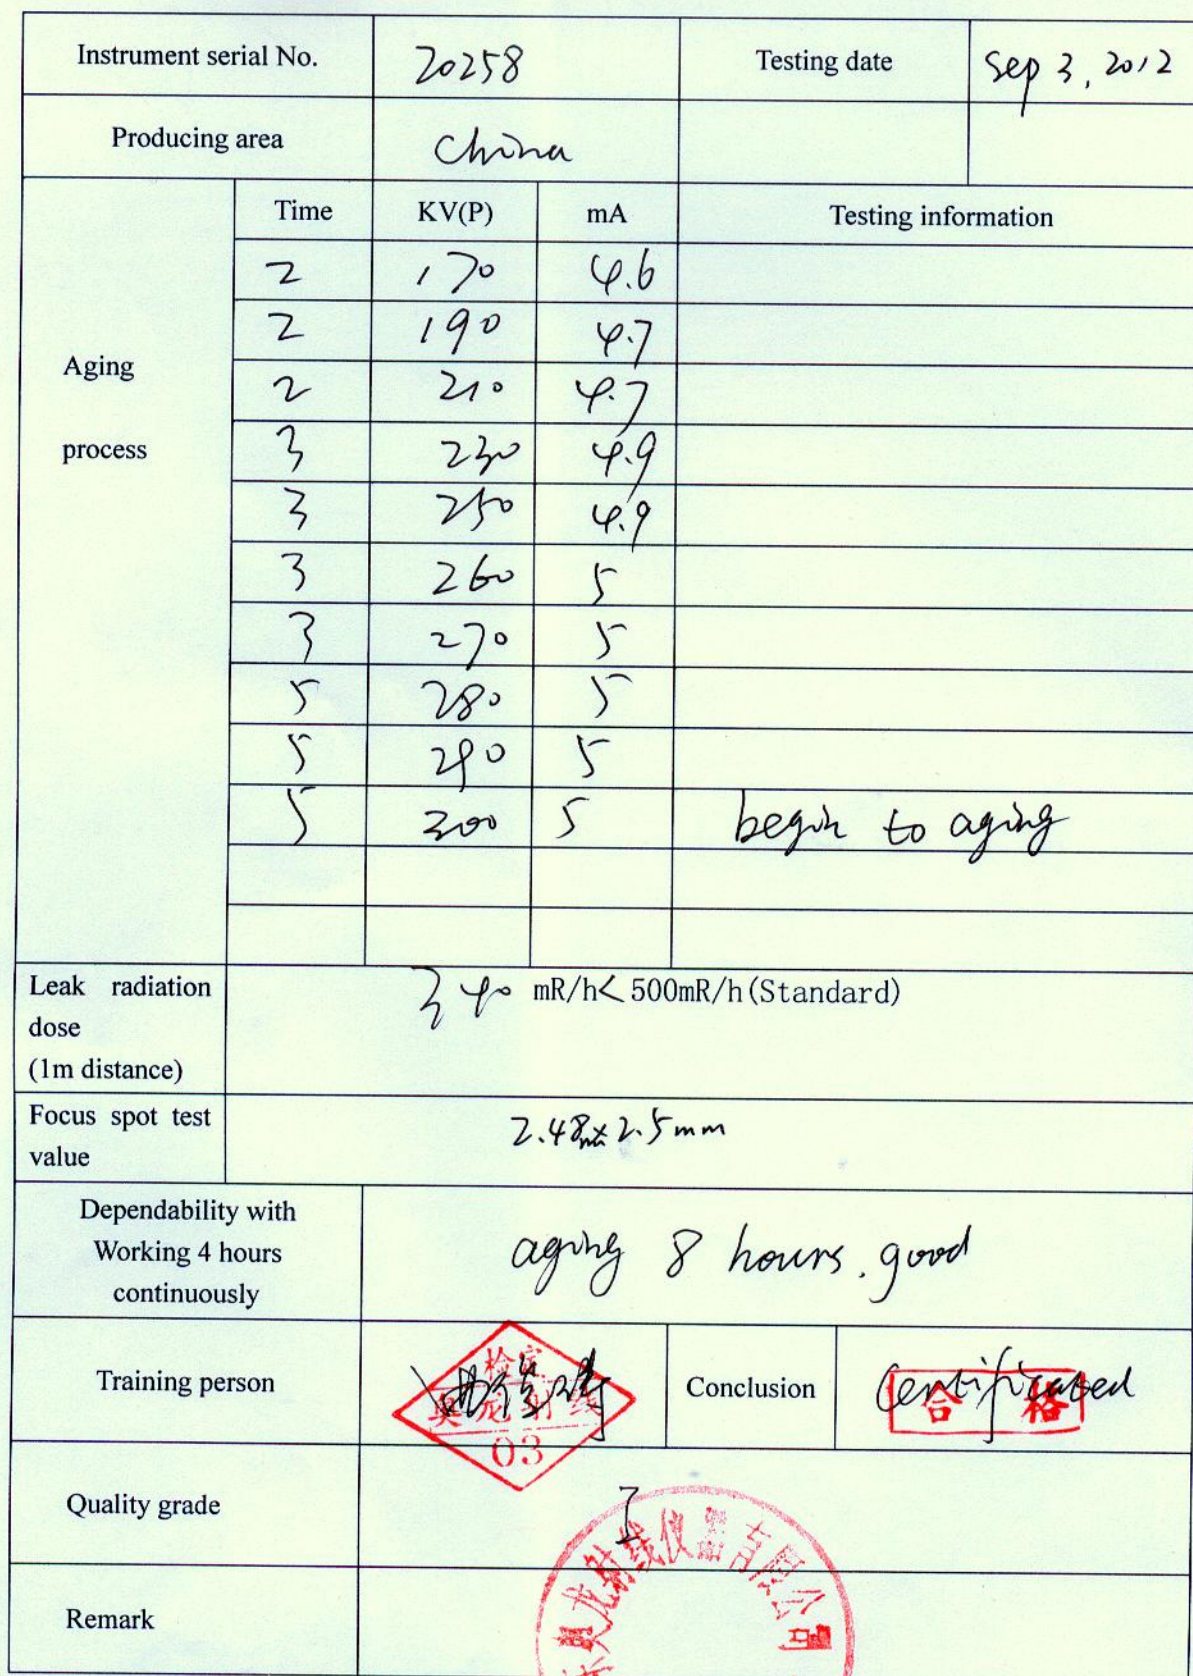 Instrument serial No. 20258 Testing date Sep 3, 2012
Producing area China
Time KV(P) mA Testing information
2 170 4.6
2 190 4.7
Aging
2 210 4.7
process
3 230 4.9
3 250 4.9
3 260 5
3 270 5
5 280 5
5 290 5
5 300 5 begin to aging
Leak radiation
dose
(1m distance)
340 mR/h<500mR/h(Standard)
Focus spot test
value
2.48mm×2.5mm
Dependability with
Working 4 hours
continuously
aging 8 hours. good
Training person
检定
奥龙射线
03
Conclusion
Certificated
合格
Quality grade I
奥龙射线仪器有限公司
Remark